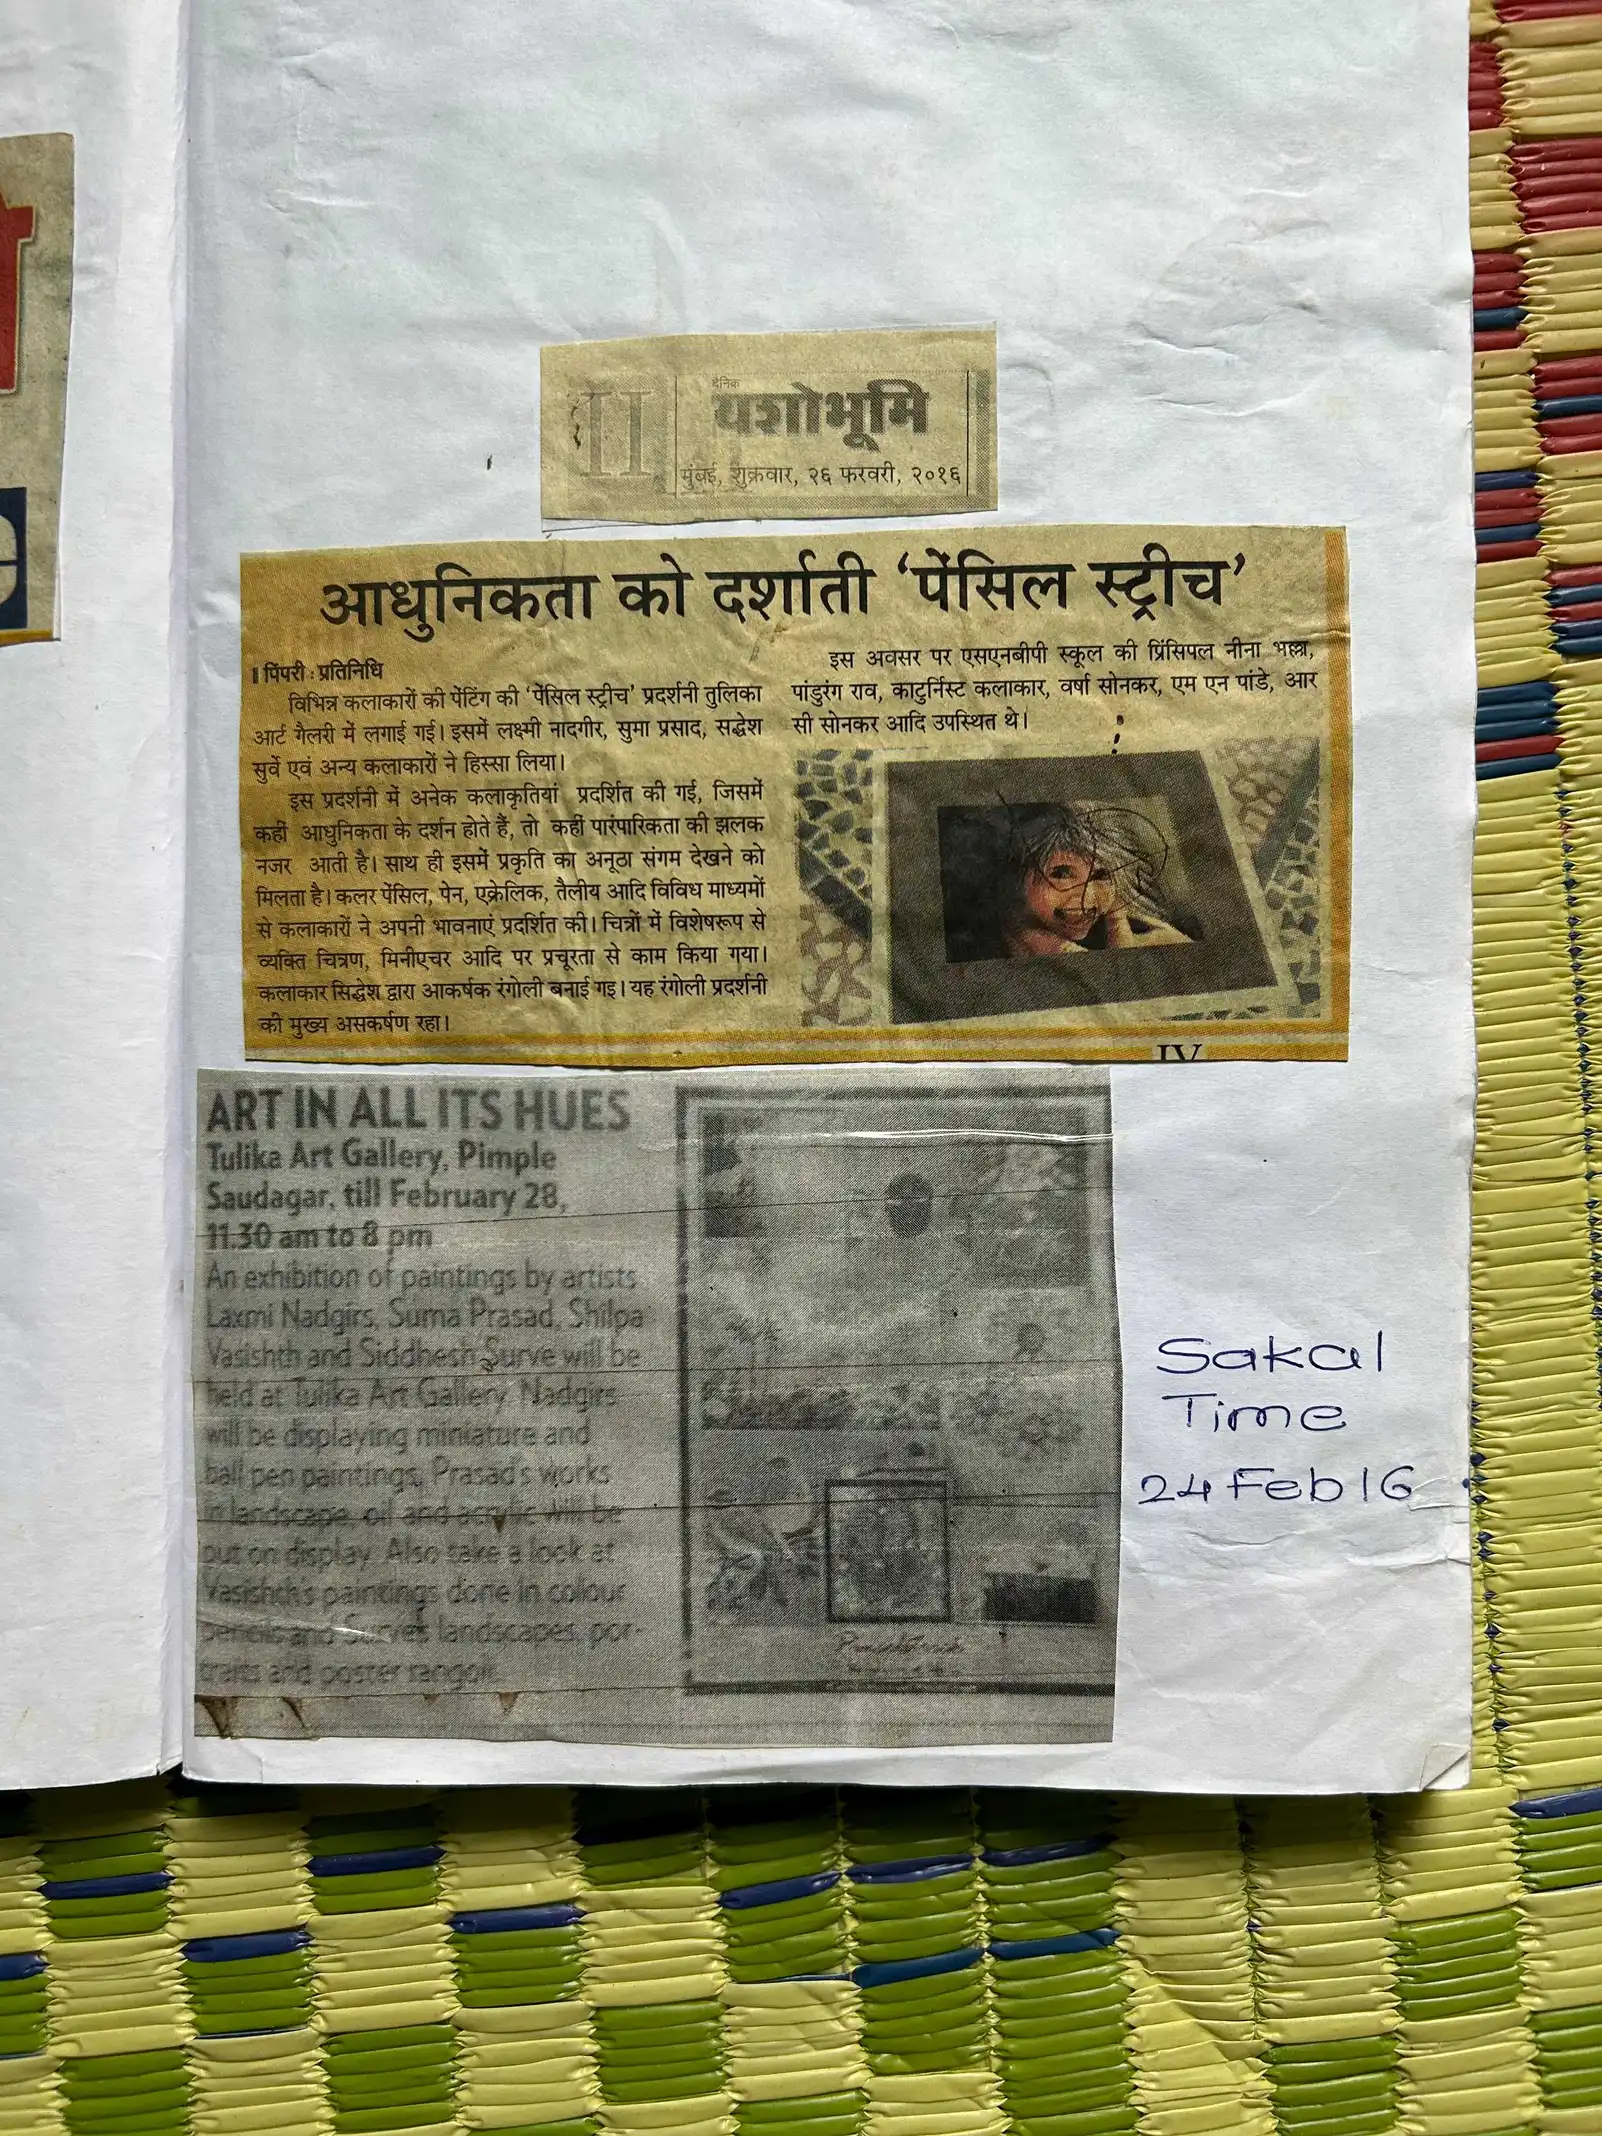 II
दैनिक
यशोभूमि
मुंबई, शुक्रवार, २६ फरवरी, २०१६
आधुनिकता को दर्शाती ‘पेंसिल स्ट्रीच’
पिंपरी : प्रतिनिधि
विभिन्न कलाकारों की पेंटिंग की ‘पेंसिल स्ट्रीच’ प्रदर्शनी तुलिका
आर्ट गैलरी में लगाई गई। इसमें लक्ष्मी नादगीर, सुमा प्रसाद, सद्धेश
सुर्वे एवं अन्य कलाकारों ने हिस्सा लिया।
इस प्रदर्शनी में अनेक कलाकृतियां प्रदर्शित की गई, जिसमें
कहीं आधुनिकता के दर्शन होते हैं, तो कहीं पारंपारिकता की झलक
नजर आती है। साथ ही इसमें प्रकृति का अनूठा संगम देखने को
मिलता है। कलर पेंसिल, पेन, एक्रेलिक, तैलीय आदि विविध माध्यमों
से कलाकारों ने अपनी भावनाएं प्रदर्शित की। चित्रों में विशेषरूप से
व्यक्ति चित्रण, मिनीएचर आदि पर प्रचूरता से काम किया गया।
कलाकार सिद्धेश द्वारा आकर्षक रंगोली बनाई गइ। यह रंगोली प्रदर्शनी
की मुख्य असकर्षण रहा।
इस अवसर पर एसएनबीपी स्कूल की प्रिंसिपल नीना भल्ला,
पांडुरंग राव, काटुर्निस्ट कलाकार, वर्षा सोनकर, एम एन पांडे, आर
सी सोनकर आदि उपस्थित थे।
IV
ART IN ALL ITS HUES
Tulika Art Gallery, Pimple
Saudagar, till February 28,
11.30 am to 8 pm
An exhibition of paintings by artists
Laxmi Nadgirs, Suma Prasad, Shilpa
Vasishth and Siddhesh Surve will be
held at Tulika Art Gallery. Nadgirs
will be displaying miniature and
ball pen paintings, Prasad's works
in landscape, oil and acrylic will be
put on display. Also take a look at
Vasishth's paintings done in colour
pencils and Surve's landscapes, por-
traits and poster rangoli.
Sakal
Time
24 Feb 16